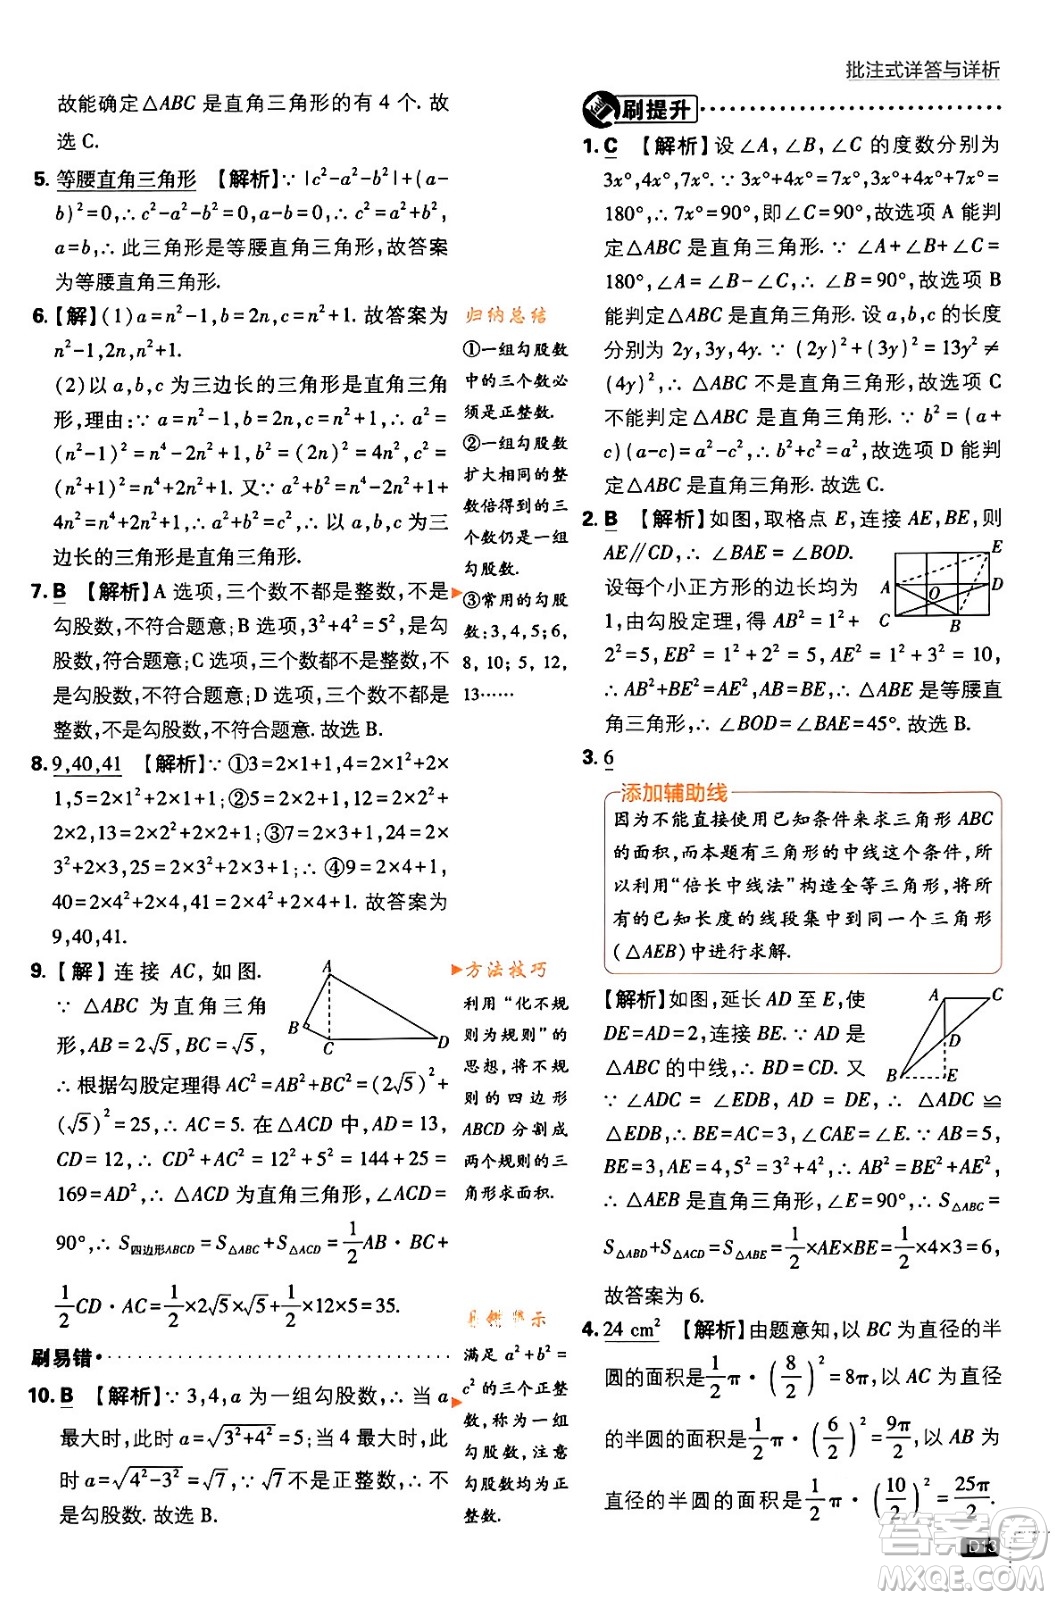 批注式详答与详析
故能确定△ABC是直角三角形的有4个. 故
选C.
5. 等腰直角三角形 【解析】∵ |c²-a²-b²|+(a-
b)²=0,∴ c²-a²-b²=0,a-b=0,∴ c²=a²+b²,
a=b,∴ 此三角形是等腰直角三角形,故答案
为等腰直角三角形.
6.【解】(1)a=n²-1,b=2n,c=n²+1. 故答案为
n²-1,2n,n²+1.
(2)以a,b,c为三边长的三角形是直角三角
形,理由:∵ a=n²-1,b=2n,c=n²+1,∴ a²=
(n²-1)²=n⁴-2n²+1,b²=(2n)²=4n²,c²=
(n²+1)²=n⁴+2n²+1. 又∵ a²+b²=n⁴-2n²+1+
4n²=n⁴+2n²+1,∴ a²+b²=c²,∴ 以a,b,c为三
边长的三角形是直角三角形.
7. B 【解析】A选项,三个数不都是整数,不是
勾股数,不符合题意;B选项,3²+4²=5²,是勾
股数,符合题意;C选项,三个数都不是整数,不
是勾股数,不符合题意;D选项,三个数不都是
整数,不是勾股数,不符合题意. 故选B.
8. 9,40,41 【解析】∵ ①3=2×1+1,4=2×1²+2×
1,5=2×1²+2×1+1;②5=2×2+1,12=2×2²+
2×2,13=2×2²+2×2+1;③7=2×3+1,24=2×
3²+2×3,25=2×3²+2×3+1;∴ ④9=2×4+1,
40=2×4²+2×4,41=2×4²+2×4+1. 故答案为
9,40,41.
9.【解】连接AC,如图.
∵ △ABC为直角三角
形,AB=2√5,BC=√5,
∴ 根据勾股定理得AC²=AB²+BC²=(2√5)²+
(√5)²=25,∴ AC=5. 在△ACD中,AD=13,
CD=12,∴ CD²+AC²=12²+5²=144+25=
169=AD²,∴ △ACD为直角三角形,∠ACD=
90°,∴ S四边形ABCD=S△ABC+S△ACD=1/2AB·BC+
1/2CD·AC=1/2×2√5×√5+1/2×12×5=35.
A
B
C
D
刷易错
10. B 【解析】∵ 3,4,a为一组勾股数,∴ 当a
最大时,此时a=√(3²+4²)=5;当4最大时,此
时a=√(4²-3²)=√7,∵ √7不是正整数,∴ 不
是勾股数. 故选B.
归纳总结
①一组勾股数
中的三个数必
须是正整数.
②一组勾股数
扩大相同的整
数倍得到的三
个数仍是一组
勾股数.
③常用的勾股
数:3,4,5;6,
8,10;5,12,
13……
方法技巧
利用“化不规
则为规则”的
思想,将不规
则的四边形
ABCD分割成
两个规则的三
角形求面积.
满足a²+b²=
c²的三个正整
数,称为一组
勾股数,注意
勾股数都是正
整数.
刷提升
1. C 【解析】设∠A,∠B,∠C的度数分别为
3x°,4x°,7x°,∵ 3x°+4x°=7x°,3x°+4x°+7x°=
180°,∴ 7x°=90°,即∠C=90°,故选项A能判
定△ABC是直角三角形. ∵ ∠A+∠B+∠C=
180°,∠A+∠C=∠B,∴ ∠B=90°,故选项B
能判定△ABC是直角三角形. 设a,b,c的长度
分别为2y,3y,4y. ∵ (2y)²+(3y)²=13y²≠
(4y)²,∴ △ABC不是直角三角形,故选项C
不能判定△ABC是直角三角形. ∵ b²=(a+
c)(a-c)=a²-c²,∴ b²+c²=a²,故选项D能判定
△ABC是直角三角形. 故选C.
2. B 【解析】如图,取格点E,连接AE,BE,则
AE∥CD,∴ ∠BAE=∠BOD.
设每个小正方形的边长均为
1,由勾股定理,得AB²=1²+
2²=5,EB²=1²+2²=5,AE²=1²+3²=10,
∴ AB²+BE²=AE²,AB=BE,∴ △ABE是等腰直
角三角形,∴ ∠BOD=∠BAE=45°. 故选B.
E
A
O
D
C
B
3. 6
添加辅助线
因为不能直接使用已知条件来求三角形ABC
的面积,而本题有三角形的中线这个条件,所
以利用“倍长中线法”构造全等三角形,将所
有的已知长度的线段集中到同一个三角形
(△AEB)中进行求解.
【解析】如图,延长AD至E,使
DE=AD=2,连接BE. ∵ AD是
△ABC的中线,∴ BD=CD. 又
∵ ∠ADC=∠EDB,AD=DE,∴ △ADC≌
△EDB,∴ BE=AC=3,∠CAE=∠E. ∵ AB=5,
BE=3,AE=4,5²=3²+4²,∴ AB²=BE²+AE²,
∴ △AEB是直角三角形,∠E=90°,∴ S△ABC=
S△ABD+S△ADC=S△ABE=1/2×AE×BE=1/2×4×3=6,
故答案为6.
A
C
D
B
E
4. 24 cm² 【解析】由题意知,以BC为直径的半
圆的面积是1/2π·(8/2)²=8π,以AC为直径
的半圆的面积是1/2π·(6/2)²=9π/2,以AB为
直径的半圆的面积是1/2π·(10/2)²=25π/2.
D13
答案圈
MXQE.COM